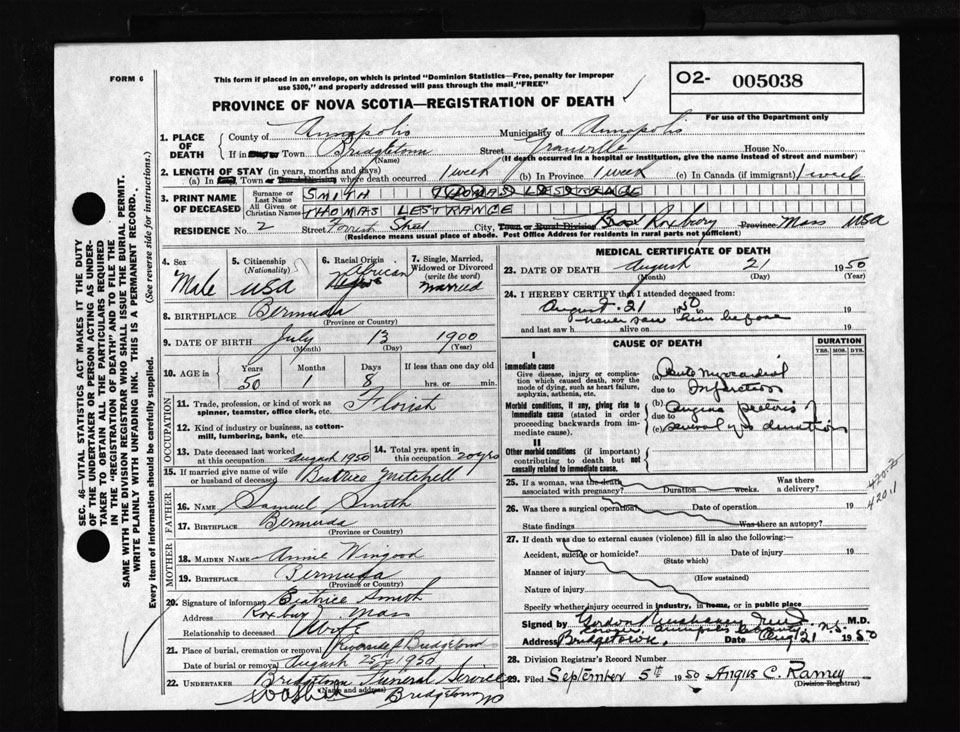 FORM 6
This form if placed in an envelope, on which is printed "Dominion Statistics—Free, penalty for improper
use $300," and properly addressed will pass through the mail "FREE"
O2- 005038
For use of the Department only
PROVINCE OF NOVA SCOTIA—REGISTRATION OF DEATH
1. PLACE OF DEATH
County of Annapolis Municipality of Annapolis
If in Town Bridgetown Street Granville House No.
(Name) (If death occurred in a hospital or institution, give the name instead of street and number)
2. LENGTH OF STAY (in years, months and days)
(a) In Town or Rural Division where death occurred 1 week (b) In Province 1 week (c) In Canada (if immigrant) 1 week
3. PRINT NAME OF DECEASED
Surname or Last Name SMITH THOMAS LESTRANGE
All Given or Christian Names THOMAS LESTRANGE
RESIDENCE No. 2 Street City, Town or Rural Division Roxbury Province Mass USA
(Residence means usual place of abode. Post Office Address for residents in rural parts not sufficient)
4. Sex Male
5. Citizenship (Nationality) USA
6. Racial Origin African Negro
7. Single, Married, Widowed or Divorced (write the word) married
8. BIRTHPLACE Bermuda
(Province or Country)
9. DATE OF BIRTH July 13 1900
(Month) (Day) (Year)
10. AGE in Years Months Days If less than one day old
50 1 8 hrs. or min.
OCCUPATION
11. Trade, profession, or kind of work as spinner, teamster, office clerk, etc. Florist
12. Kind of industry or business, as cotton-mill, lumbering, bank, etc.
13. Date deceased last worked at this occupation August 1950
14. Total yrs. spent in this occupation 20 yrs
15. If married give name of wife or husband of deceased Beatrice Mitchell
FATHER
16. NAME Samuel Smith
17. BIRTHPLACE Bermuda
MOTHER
18. MAIDEN NAME Annie Wingood
19. BIRTHPLACE Bermuda
(Province or Country)
20. Signature of informant Beatrice Smith
Address Roxbury Mass
Relationship to deceased Wife
21. Place of burial, cremation or removal Riverside Bridgetown
Date of burial or removal August 25 1950
22. UNDERTAKER Bridgetown Funeral Service
(Name and address) Bridgetown NS
MEDICAL CERTIFICATE OF DEATH
23. DATE OF DEATH August 21 1950
(Month) (Day)
24. I HEREBY CERTIFY that I attended deceased from
August 21 1950 to 19
and last saw h alive on never saw him before 19
CAUSE OF DEATH
DURATION
YRS. MOS. DYS.
I
Immediate cause
Give disease, injury or complication which caused death, NOT the mode of dying, such as heart failure, asphyxia, asthenia, etc.
(a) Acute myocardial
due to Infarction
Morbid conditions, if any, giving rise to immediate cause (stated in order proceeding backwards from immediate cause).
(b) Angina Pectoris
due to
(c) several yrs duration
II
Other morbid conditions (if important) contributing to death but not causally related to immediate cause.
420.1
25. If a woman, was the death associated with pregnancy? Duration weeks. Was there a delivery?
26. Was there a surgical operation? Date of operation 19
State findings Was there an autopsy?
27. If death was due to external causes (violence) fill in also the following:—
Accident, suicide or homicide? Date of injury 19
(State which)
Manner of injury
(How sustained)
Nature of injury
Specify whether injury occurred in industry, in home, or in public place
Signed by Gordon M.D.
Address Bridgetown Date Aug 21 1950
28. Division Registrar's Record Number
29. Filed September 5th 1950 Angus C. Ramey
(Division Registrar)
SEC. 46—VITAL STATISTICS ACT MAKES IT THE DUTY
OF THE UNDERTAKER OR PERSON ACTING AS UNDER-
TAKER TO OBTAIN ALL THE PARTICULARS REQUIRED
IN THE "REGISTRATION OF DEATH" AND TO FILE THE
SAME WITH THE DIVISION REGISTRAR WHO SHALL ISSUE THE BURIAL PERMIT.
WRITE PLAINLY WITH UNFADING INK. THIS IS A PERMANENT RECORD.
Every item of information should be carefully supplied. (See reverse side for instructions.)